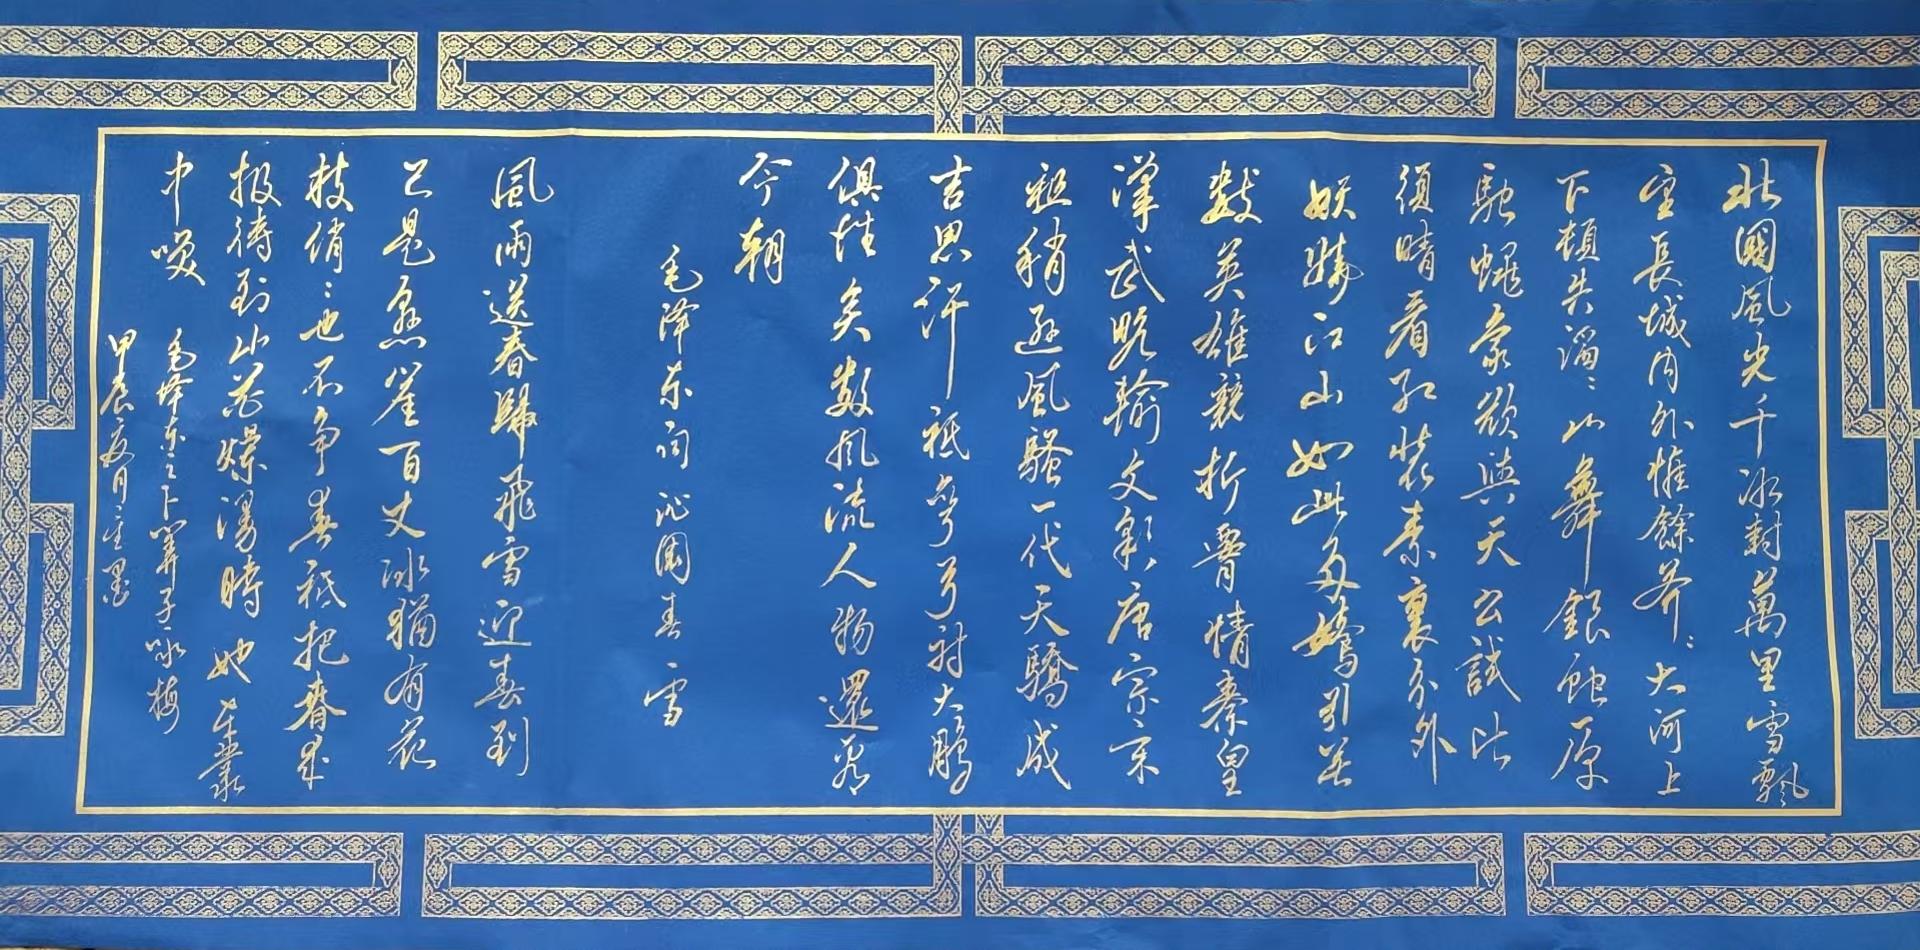 北國風光千冰封萬里雪飄
望長城內外惟餘莽〻大河上
下頓失滔〻山舞銀蛇原
馳蠟象欲與天公試比
須晴看紅裝素裹分外
妖嬈江山如此多嬌引無
數英雄競折腰惜秦皇
漢武略輸文彩唐宗宋
祖稍遜風騷一代天驕成
吉思汗祗彎弓射大鵰
俱往矣数風流人物還看
今朝
毛泽东词沁園春雪
風雨送春歸飛雪迎春到
已是懸崖百丈冰猶有花
枝俏〻也不争春祗把春來
报待到山花爛漫時她在叢
中笑
毛泽东之卜算子咏梅
甲辰夏月